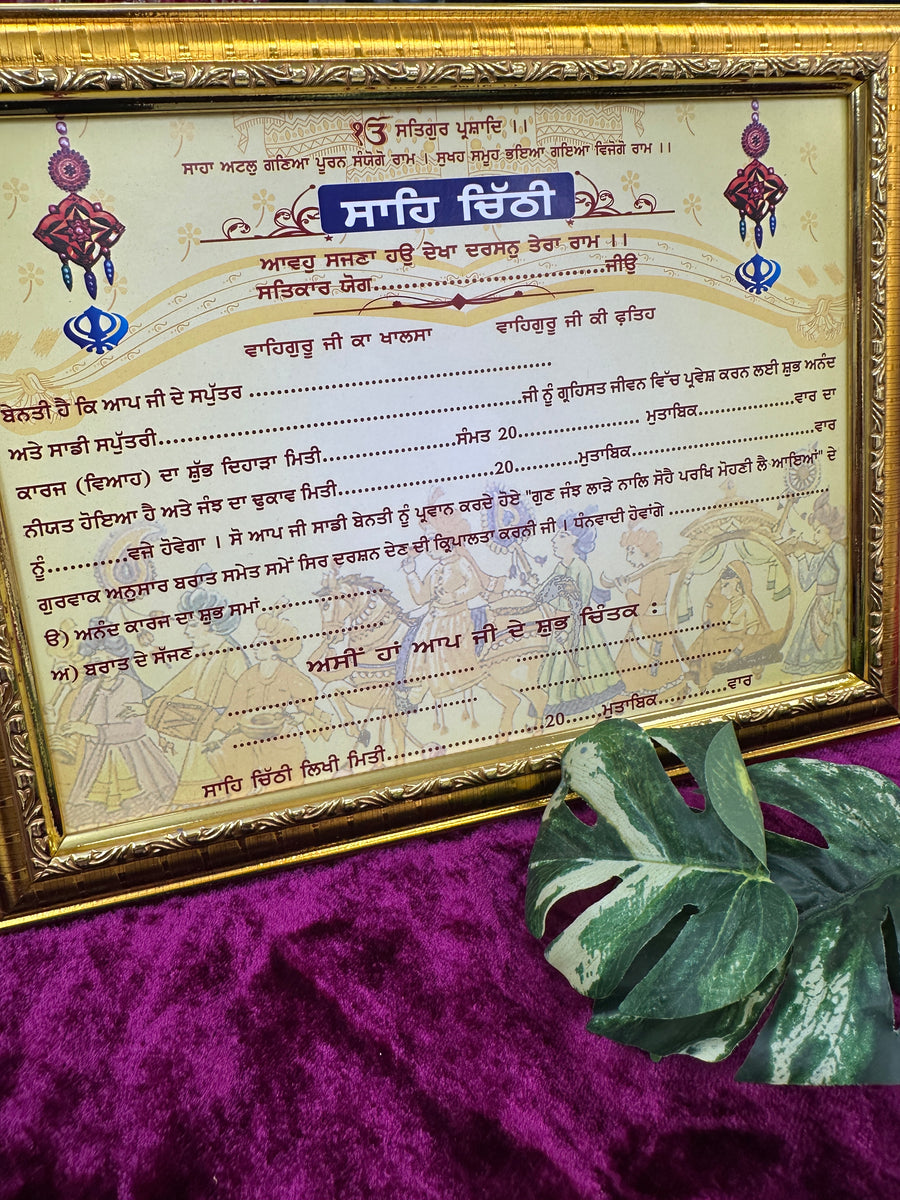 ੴ ਸਤਿਗੁਰ ਪ੍ਰਸ਼ਾਦਿ ।।
ਸਾਹਾ ਅਟਲੁ ਗਣਿਆ ਪੂਰਨ ਸੰਯੋਗੋ ਰਾਮ । ਸੁਖਹ ਸਮੂਹ ਭਇਆ ਗਇਆ ਵਿਜੋਗੋ ਰਾਮ ।।
ਸਾਹਿ ਚਿੱਠੀ
ਆਵਹੁ ਸਜਣਾ ਹਉ ਦੇਖਾ ਦਰਸਨੁ ਤੇਰਾ ਰਾਮ ।।
ਸਤਿਕਾਰ ਯੋਗ..............................ਜੀਉ
ਵਾਹਿਗੁਰੂ ਜੀ ਕਾ ਖਾਲਸਾ ਵਾਹਿਗੁਰੂ ਜੀ ਕੀ ਫ਼ਤਿਹ
ਬੇਨਤੀ ਹੈ ਕਿ ਆਪ ਜੀ ਦੇ ਸਪੁੱਤਰ ........................................
ਅਤੇ ਸਾਡੀ ਸਪੁੱਤਰੀ..................................................ਜੀ ਨੂੰ ਗ੍ਰਹਿਸਤ ਜੀਵਨ ਵਿੱਚ ਪ੍ਰਵੇਸ਼ ਕਰਨ ਲਈ ਸ਼ੁਭ ਅਨੰਦ
ਕਾਰਜ (ਵਿਆਹ) ਦਾ ਸ਼ੁੱਭ ਦਿਹਾੜਾ ਮਿਤੀ..................ਸੰਮਤ 20.................... ਮੁਤਾਬਿਕ.............ਵਾਰ ਦਾ
ਨੀਯਤ ਹੋਇਆ ਹੈ ਅਤੇ ਜੰਝ ਦਾ ਢੁਕਾਵ ਮਿਤੀ......................20..........ਮੁਤਾਬਿਕ.........................ਵਾਰ
ਨੂੰ............ਵਜੇ ਹੋਵੇਗਾ । ਸੋ ਆਪ ਜੀ ਸਾਡੀ ਬੇਨਤੀ ਨੂੰ ਪ੍ਰਵਾਨ ਕਰਦੇ ਹੋਏ "ਗੁਣ ਜੰਝ ਲਾੜੇ ਨਾਲਿ ਸੋਹੈ ਪਰਖਿ ਮੋਹਣੀ ਲੈ ਆਇਆਂ" ਦੇ
ਗੁਰਵਾਕ ਅਨੁਸਾਰ ਬਰਾਤ ਸਮੇਤ ਸਮੇਂ ਸਿਰ ਦਰਸ਼ਨ ਦੇਣ ਦੀ ਕ੍ਰਿਪਾਲਤਾ ਕਰਨੀ ਜੀ । ਧੰਨਵਾਦੀ ਹੋਵਾਂਗੇ ......................
ੳ) ਅਨੰਦ ਕਾਰਜ ਦਾ ਸ਼ੁਭ ਸਮਾਂ....................
ਅ) ਬਰਾਤ ਦੇ ਸੱਜਣ..............................
ਅਸੀਂ ਹਾਂ ਆਪ ਜੀ ਦੇ ਸ਼ੁਭ ਚਿੰਤਕ :
ਸਾਹਿ ਚਿੱਠੀ ਲਿਖੀ ਮਿਤੀ......................20......ਮੁਤਾਬਿਕ............ਵਾਰ